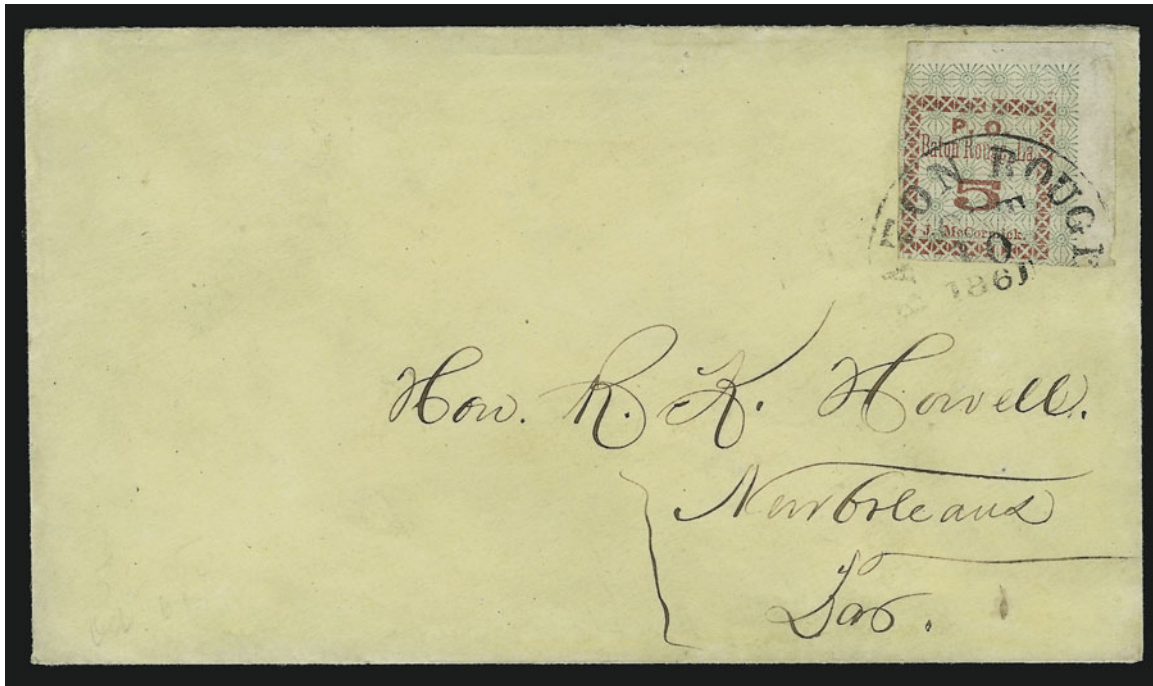 P. O.
Baton Rouge, La.
5
J. McCormick.
BATON ROUGE
OCT
10
1861
Hon. R. K. Howell.
New Orleans
La.